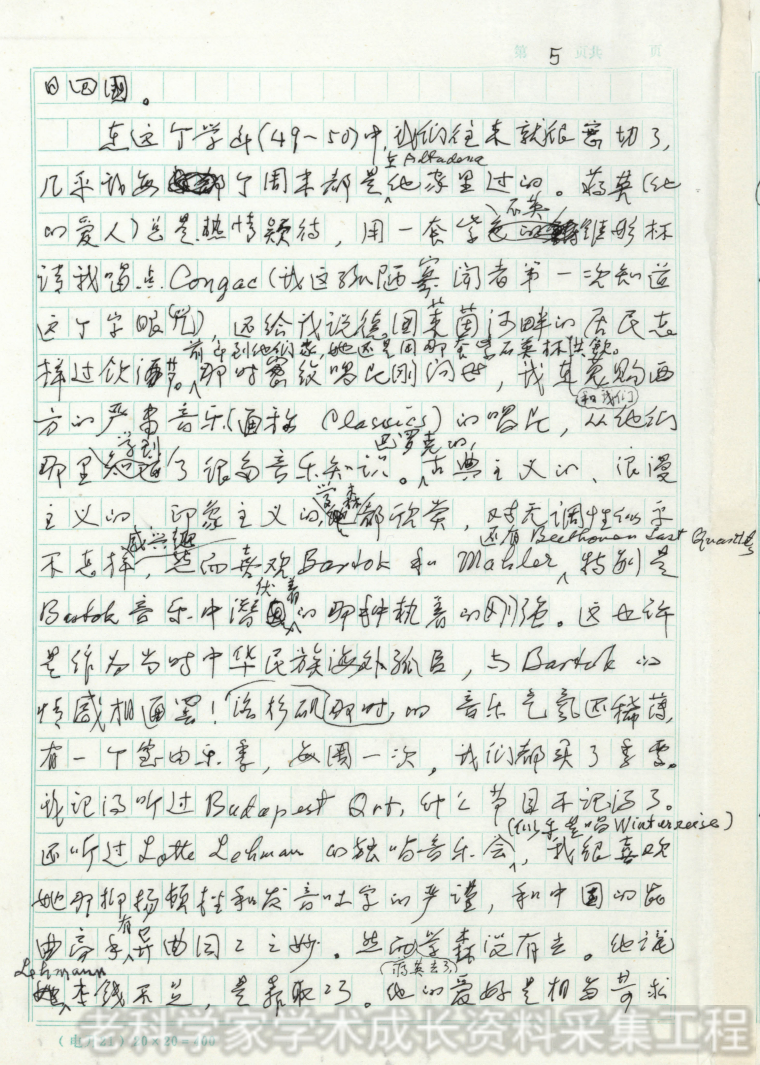 第 5 页共 页
日回国。
在这个学年(49～50)中,我们往来就很密切了,
几乎每个周末都是在Altadena他家里过的。蒋英(他
的爱人)总是热情款待,用一套紫石英锥形杯
请我喝点Congac(我这孤陋寡闻者第一次知道
这个字眼儿),还给我说德国莱茵河畔的居民怎
前年到他们家,她还是用那套紫石英杯供饮。
样过饮酒节。那时密纹唱片刚问世,我在竞购西
方的严肃音乐(通称Classics)的唱片,(和我们)从他们
那里学到了很多音乐知识。巴罗克的,古典主义的、浪漫
主义的、印象主义的学森都欣赏,对无调性似乎
不怎样感兴趣,然而喜欢Bartok和Mahler,还有Beethoven Last Quartets特别是
Bartok音乐中潜伏着的那种执着的刚强。这也许
是作为当时中华民族海外孤臣,与Bartok的
情感相通罢!洛杉矶那时的音乐气氛还稀薄,
有一个室内乐季,每周一次,我们都买了季票。
我记得听过Budapest Qrt,什么节目不记得了。
(似乎是唱Winterreise)
还听过Lotte Lehman的独唱音乐会,我很喜欢
她那抑扬顿挫和发音吐字的严谨,和中国的昆
曲高手有异曲同工之妙。然而学森没有去。(蒋英去了)他说
Lehmann本钱不足,是靠取巧。他的爱好是相当苛求
(电 21) 20×20=400
老科学家学术成长资料采集工程